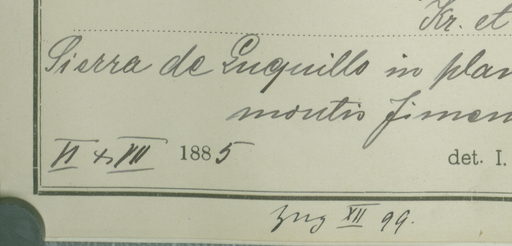 Kr. et
Sierra de Luquillo in plan
montis Jimen
VI & VII 1885
det. I.
XII 99.